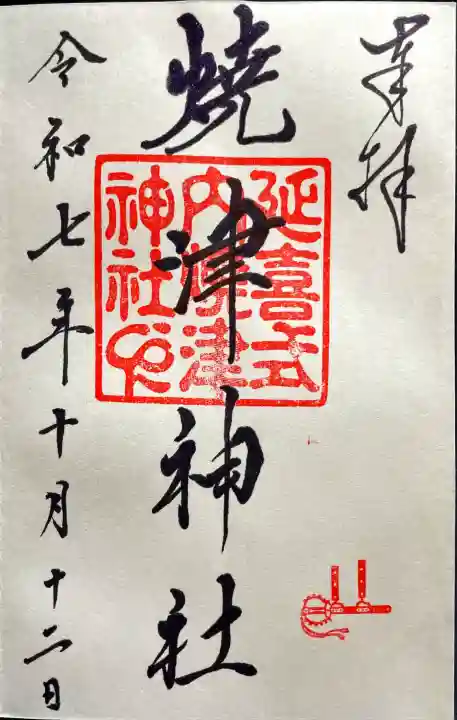 奉拝
燒津神社
延喜式
内焼津
神社印
令和七年十月十二日